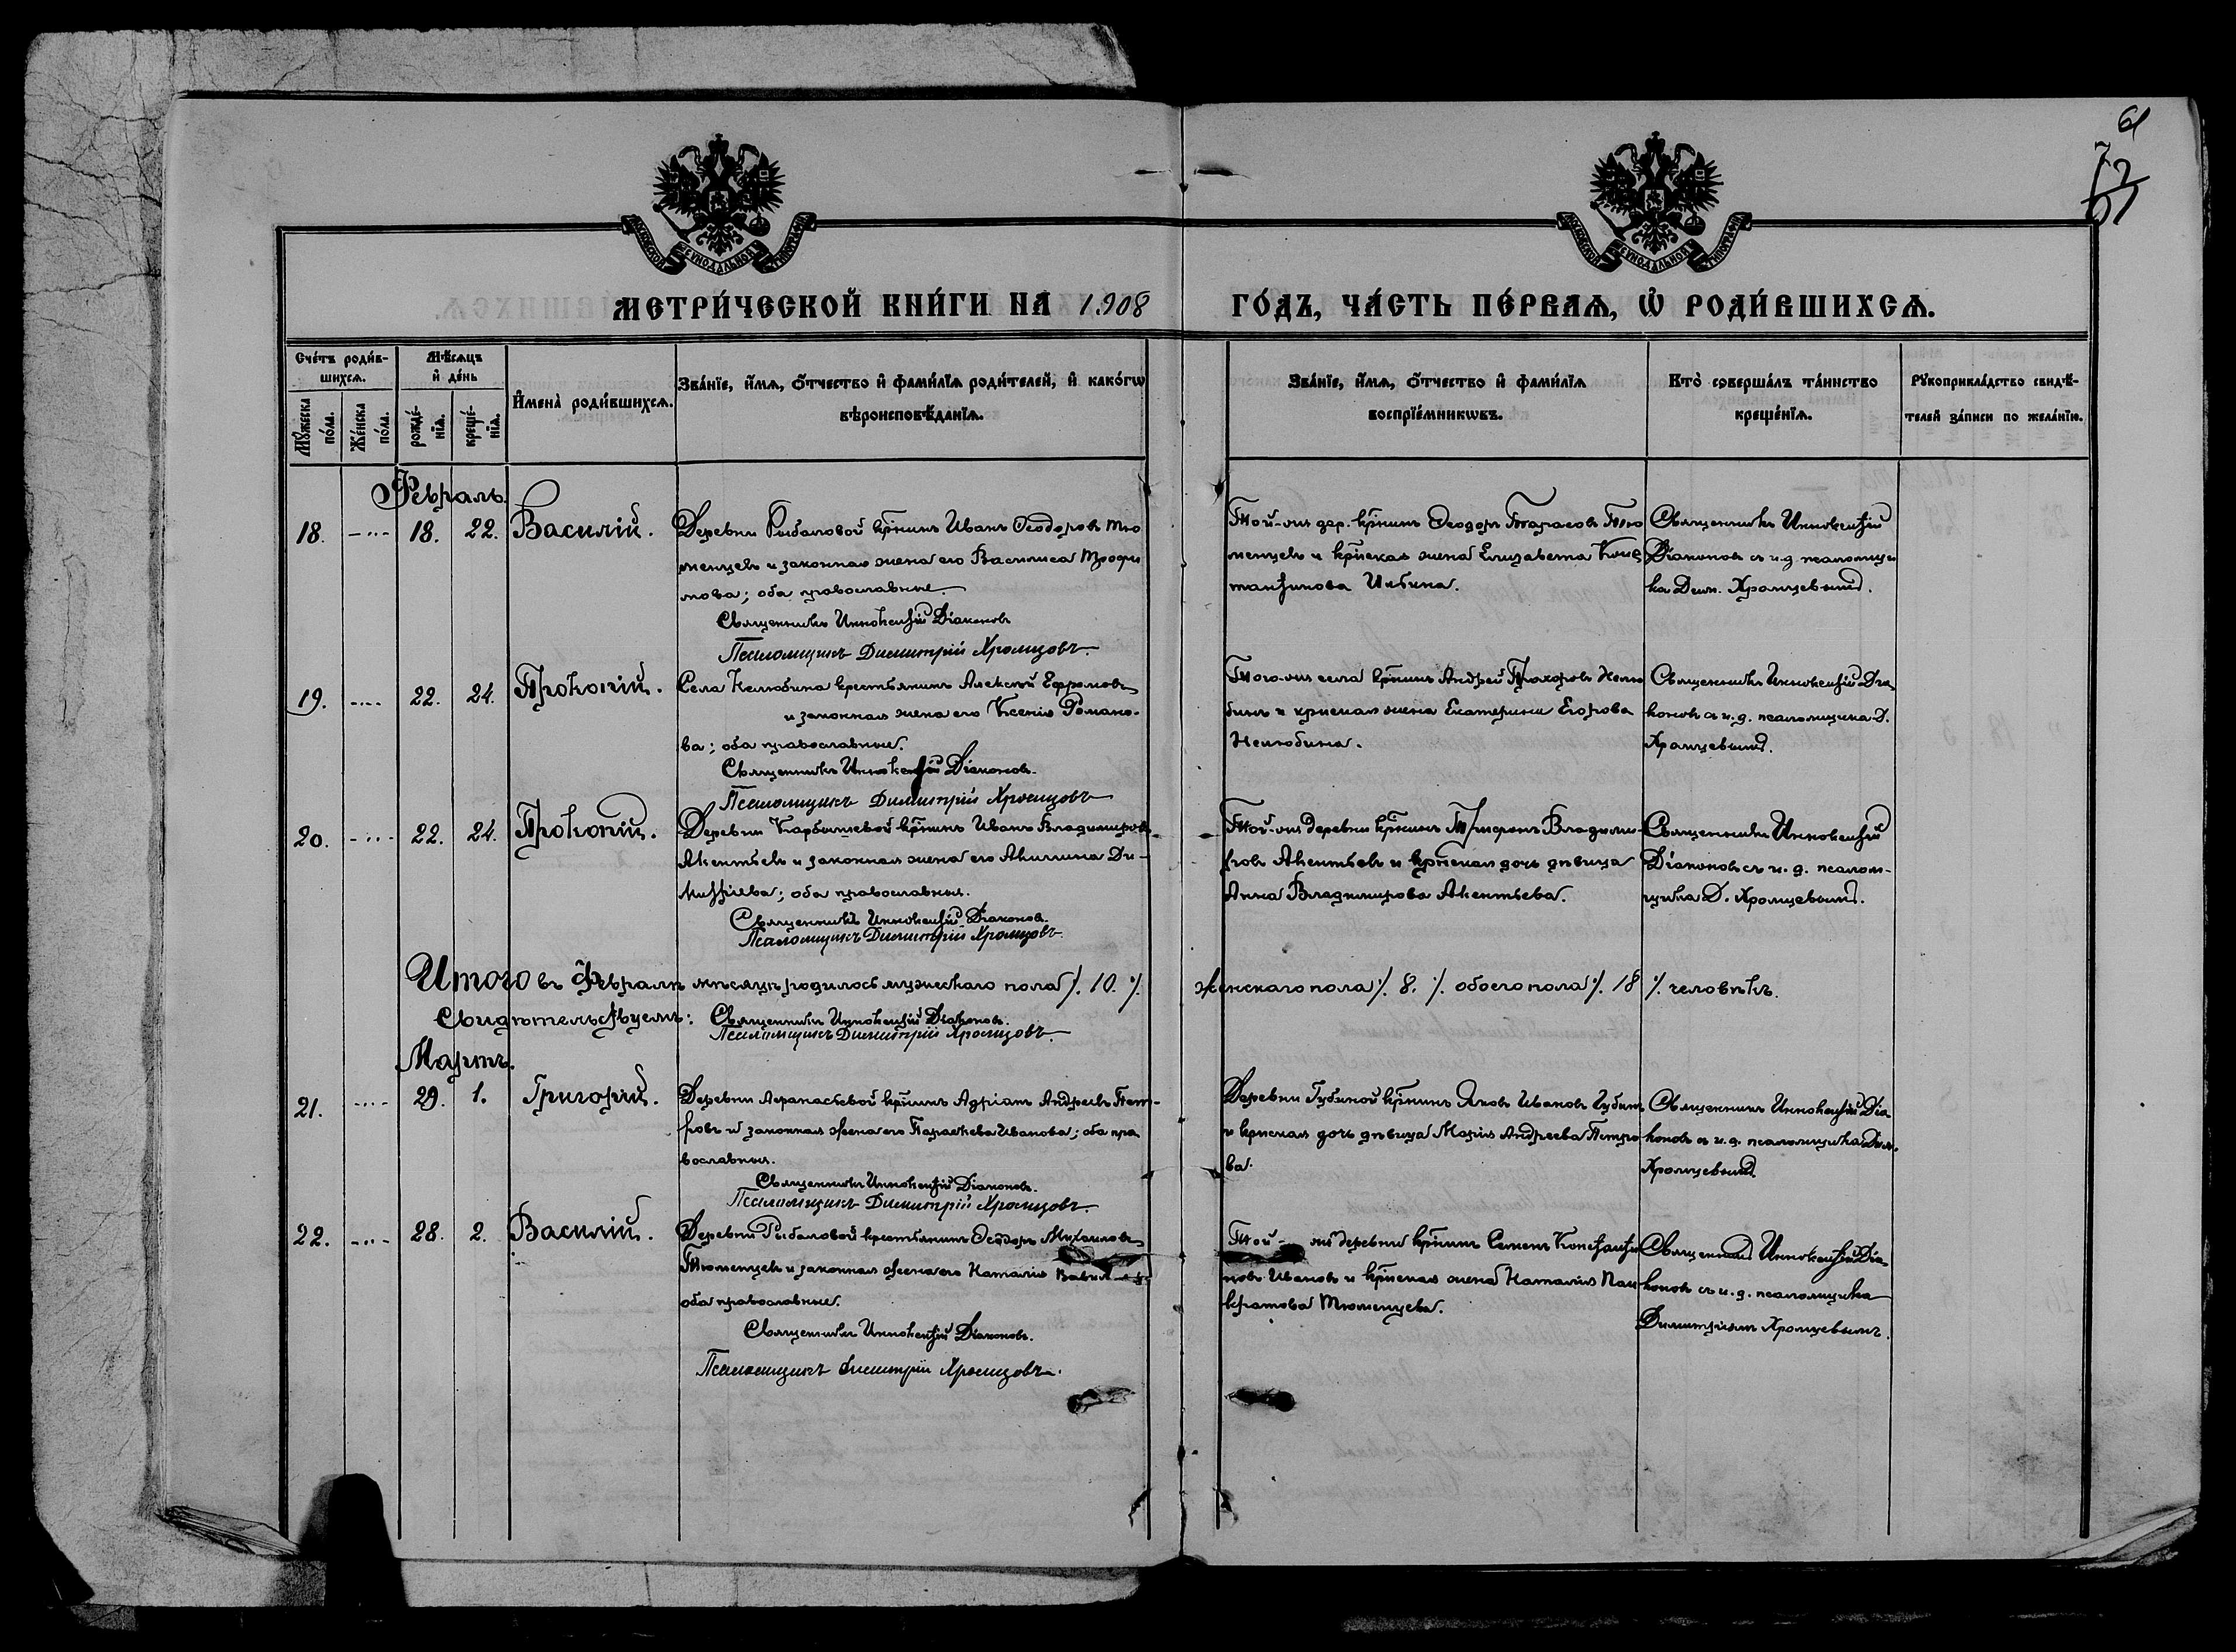 61
МЕТРИ́ЧЕСКОЙ КНИ́ГИ НА 1908 ГО́ДЪ, ЧА́СТЬ ПЕ́РВАѦ, Ѡ РОДИ́ВШИХСѦ.
Сче́тъ роди́в-
шихсѧ.
Мꙋ́жеска по́ла.
Же́нска по́ла.
Мѣ́сѧцъ
и҆ де́нь
рожде́-
нїѧ.
креще́-
нїѧ.
И҆мена̀ роди́вшихсѧ.
Зва́нїе, и҆́мѧ, ѻ҆́тчество и҆ фами́лїѧ роди́телей, и҆ како́гѡ
вѣроисповѣ́данїѧ.
Зва́нїе, и҆́мѧ, ѻ҆́тчество и҆ фами́лїѧ
воспрїе́мникѡвъ.
Кто̀ соверша́лъ та́инство
креще́нїѧ.
Рꙋкоприкла́дство свидѣ́-
телей за́писи по жела́нїю.
Февраль
18. 18. 22. Василій.
Деревни Рыбаловой кр-нинъ Иванъ Ѳеодоровъ Тю
менцевъ и законная жена его Васииса Трофи
мова; оба православные.
Священникъ Иннокентій Діаконовъ
Псаломщикъ Димитрій Хромцовъ.
Той-же дер. кр-нинъ Ѳеодоръ Тарасовъ Тю
менцевъ и кр-нская жена Елизавета Конс
тантинова
Священникъ Иннокентій
Діаконовъ съ и.д. псаломщи
ка Дим. Хромцевымъ.
19. 22. 24. Прокопій.
Села Нелюбина крестьянинъ Алексѣй Ефремовъ
и законная жена его Ксенія Романо-
ва; оба православные.
Священникъ Иннокентій Діаконовъ.
Псаломщикъ Димитрій Хромцовъ
Того-же села кр-нинъ Андрей Прохоровъ Нелю
бинъ и кр-нская жена Екатерина Егорова
Нелюбина.
Священникъ Иннокентій Діа
коновъ съ и.д. псаломщика Д.
Хромцевымъ.
20. 22. 24. Прокопій.
Деревни Карбышевой кр-нинъ Иванъ Владимировъ
Акентьевъ и законная жена его Акилина Ди-
митріева; оба православные.
Священникъ Иннокентій Діаконовъ.
Псаломщикъ Димитрій Хромцовъ.
Той-же деревни кр-нинъ Трифонъ Владими-
ровъ Акентьевъ и кр-нская дочь дѣвица
Анна Владимирова Акентьева.
Священникъ Иннокентій
Діаконовъ съ и.д. псалом-
щика Д. Хромцевымъ.
Итого въ Февралѣ мѣсяцѣ родилось мужескаго пола ⁒ 10. ⁒ женскаго пола ⁒ 8. ⁒ обоего пола ⁒ 18 ⁒ человѣкъ.
Свидѣтельствуемъ: Священникъ Иннокентій Діаконовъ.
Псаломщикъ Димитрій Хромцовъ.
Мартъ.
21. 29. 1. Григорій.
Деревни Аѳанасьевой кр-нинъ Адріанъ Андреевъ Пет-
ровъ и законная жена его Параскева Иванова; оба пра
вославные.
Священникъ Иннокентій Діаконовъ.
Псаломщикъ Димитрій Хромцовъ.
Деревни Губиной кр-нинъ Яковъ Ивановъ Губинъ
и кр-нская дочь дѣвица Марія Андреева Петро
ва.
Священникъ Иннокентій Діа
коновъ съ и.д. псаломщика Дим.
Хромцевымъ
22. 28. 2. Василій.
Деревни Рыбаловой крестьянинъ Ѳедоръ Михаиловъ
Тюменцевъ и законная жена его Наталія
оба православные.
Священникъ Иннокентій Діаконовъ.
Псаломщикъ Димитрій Хромцовъ.
Той-же деревни кр-нинъ Семенъ Константи
новъ Ивановъ и кр-нская жена Наталія Пан
кратова Тюменцева.
Священникъ Иннокентій Діа
коновъ съ и.д. псаломщика
Димитріемъ Хромцевымъ.